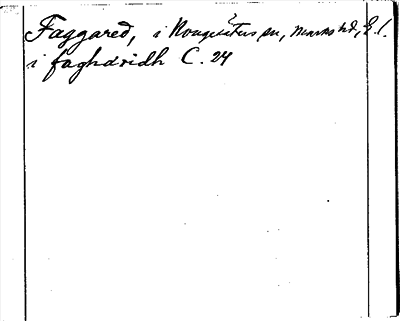 Faggared, i Kongsäters sn, Marks hd, E. l.
i faghdridh C. 24